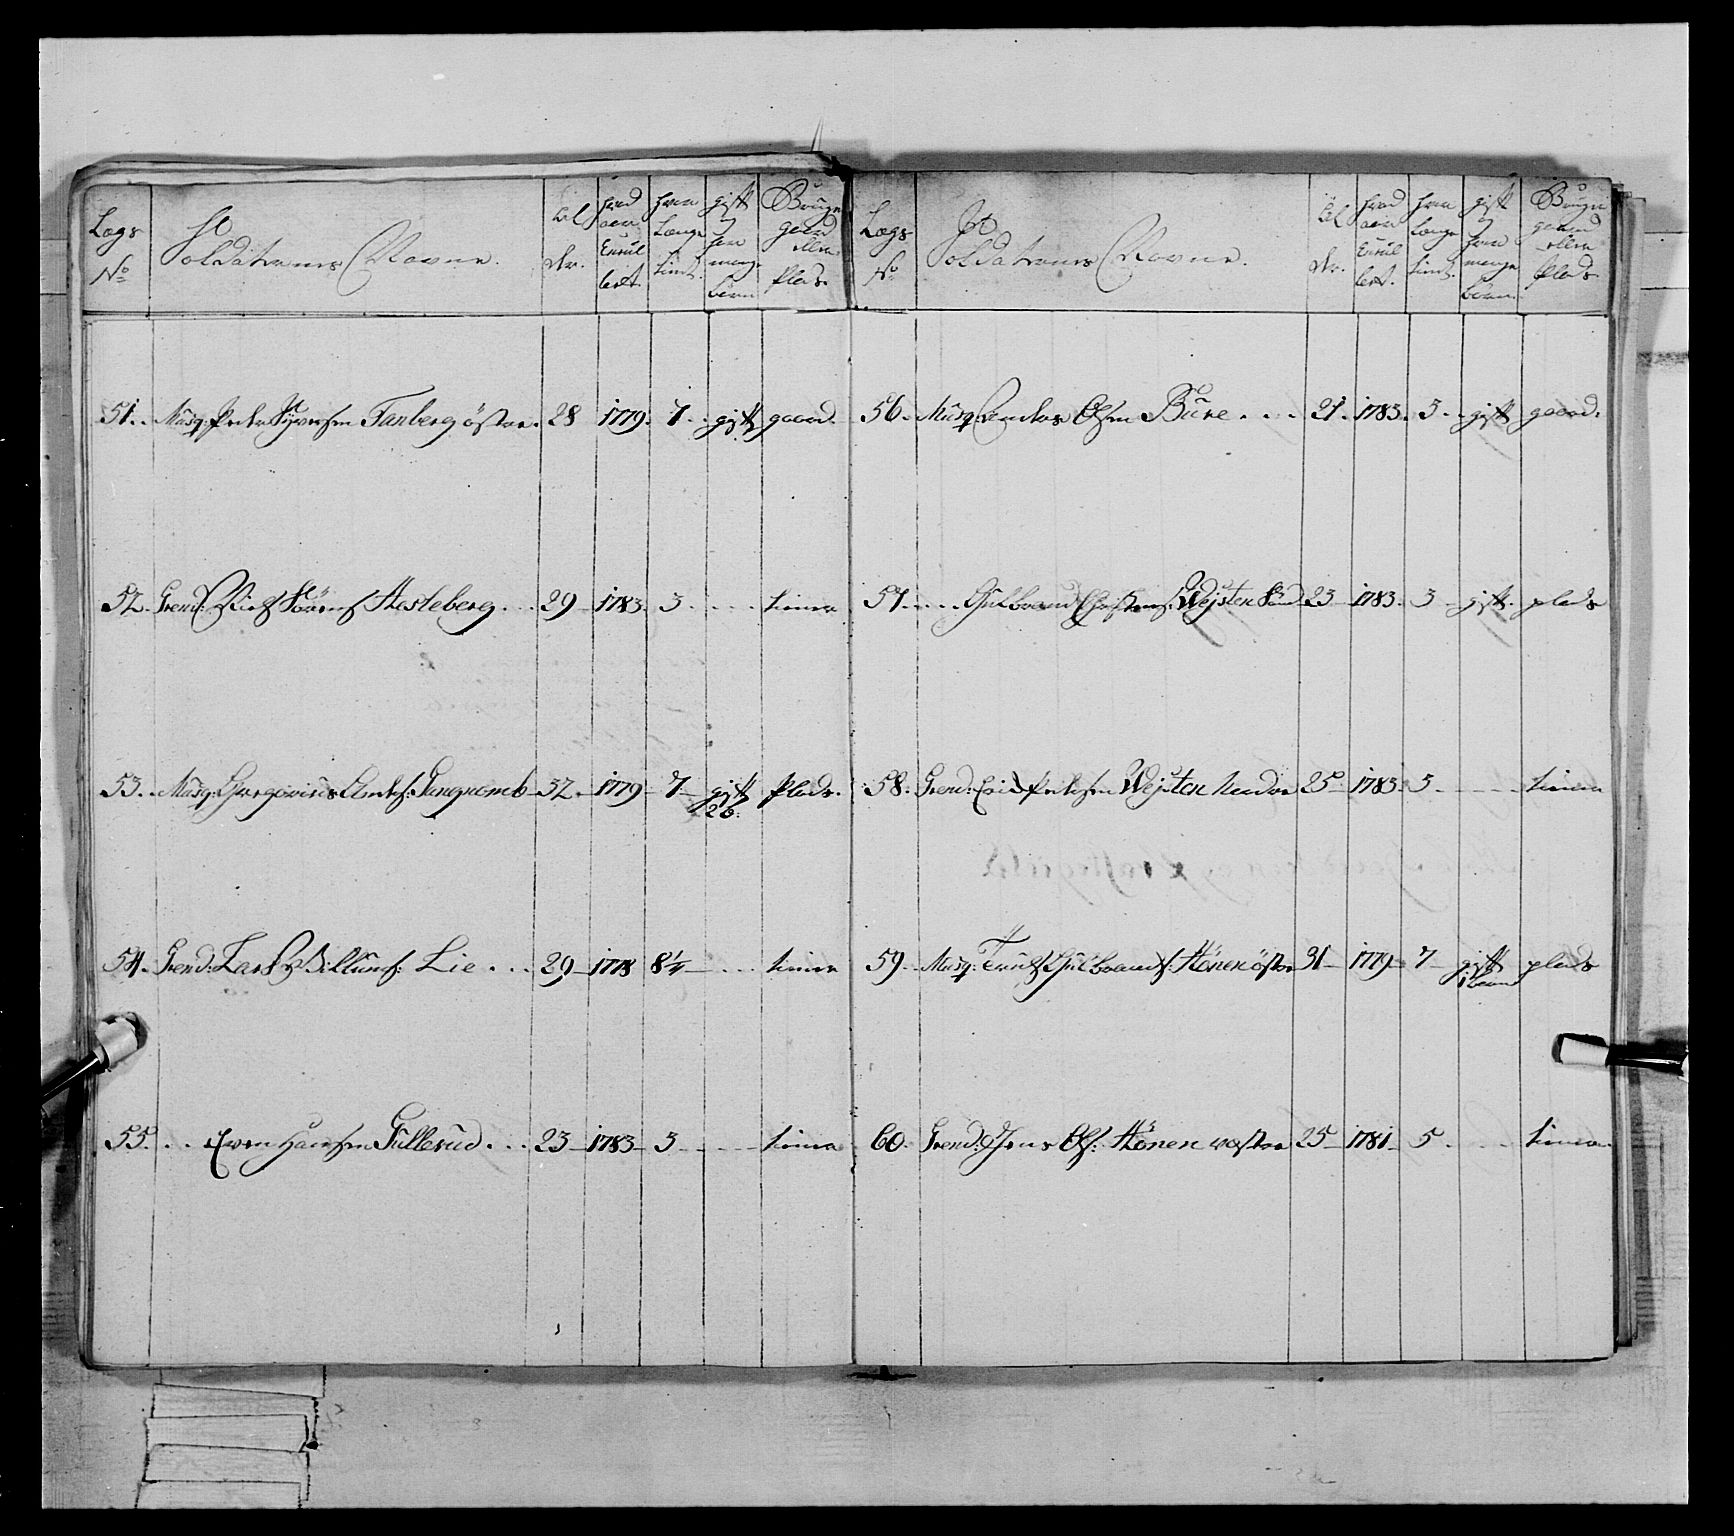 Legs No
Soldaternes Navne.
Al der.
hvad aar Enrulleret.
hvor Længe tient.
gift og hvor mange børn
Bruger gaard eller Plads.
51. Musq: Peder Syversen Fanberg östre. 28 1779. 7. gift gaard.
52. Grend: Sörens: Hesleberg. 29 1783. 3. tiener
53. Musq: Gregorius Gangnomb 32. 1779 7 gift Plads.
2 b.
54. Grend: Lars Lie 29 1778 8 1/4 tiener
55. Even Hansen Gullerud. 23 1783 3 tiener
Legs No
Soldaternes Navne.
Al der.
hvad aar Enrulleret.
hvor Længe tient.
gift og hvor mange börn.
Bruger gaard eller Plads.
56. Musq: Anders Olsen Bure 21. 1783. 3. gift gaard.
57. Gulbrand Christens: Wejsten 23 1783. 3 gift. plads
58. Grend: Pedersen Wejsten nedre 25 1783. 3. tiener
59. Musq: Gulbrands: Hönen östre 31 1779 7 gift plads
1 barn
60. Grend: Jens Ols: Hönen vestre 25 1781 5. tiener.